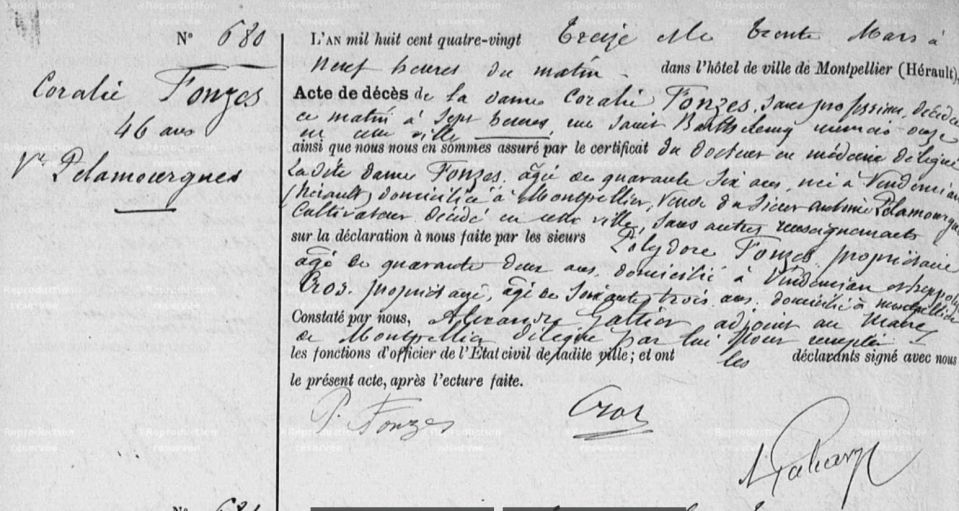 N° 680
Coralie Fonzes
46 ans
Vve Pelamourgues
L'AN mil huit cent quatre-vingt treize et le trente Mars à
neuf heures du matin. dans l'hôtel de ville de Montpellier (Hérault),
Acte de décès de la dame Coralie Fonzes, sans profession, décédée
ce matin à sept heures, rue Saint Barthelemy numéro onze
en cette ville
ainsi que nous nous en sommes assuré par le certificat du docteur en médecine délégué
La dite dame Fonzes, âgée de quarante six ans, née à Vendémian
(Hérault) domiciliée à Montpellier, veuve du sieur Antoine Pelamourgues
Cultivateur, décédé en cette ville, sans autres renseignements
sur la déclaration à nous faite par les sieurs Polydore Fonzes, propriétaire
âgé de quarante deux ans, domicilié à Vendémian et
Cros, propriétaire, âgé de soixante trois ans, domicilié à Montpellier
Constaté par nous, Alexandre adjoint au Maire
de Montpellier délégué par lui pour remplir
les fonctions d'officier de l'Etat civil de ladite ville; et ont les déclarants signé avec nous
le présent acte, après l'ecture faite.
P. Fonzes
Cros